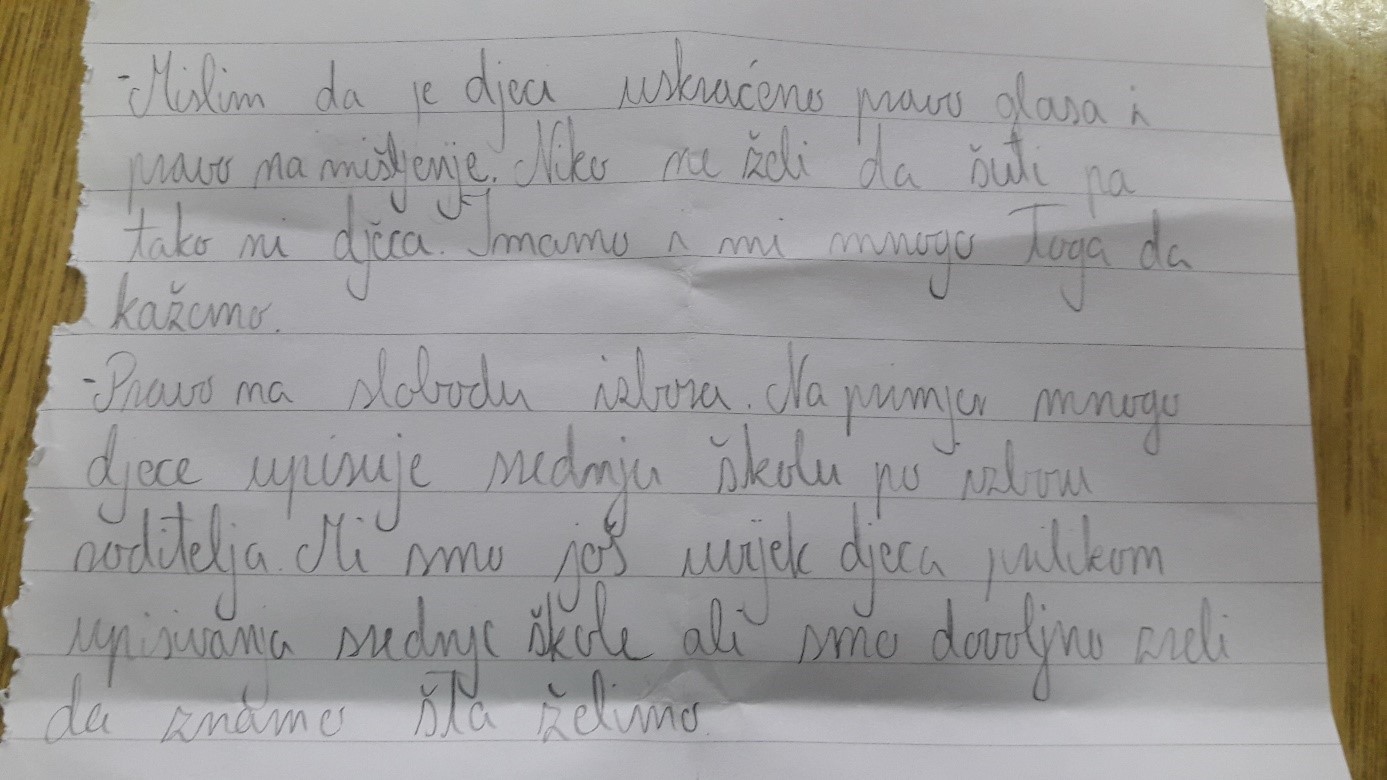 -Mislim da je djeci uskraćeno pravo glasa i
pravo na mišljenje. Niko ne želi da šuti pa
tako ni djeca. Imamo i mi mnogo toga da
kažemo.
-Pravo na slobodu izbora. Na primjer mnogo
djece upisuje srednju školu po izboru
roditelja. Mi smo još uvijek djeca prilikom
upisivanja srednje škole ali smo dovoljno zreli
da znamo šta želimo.